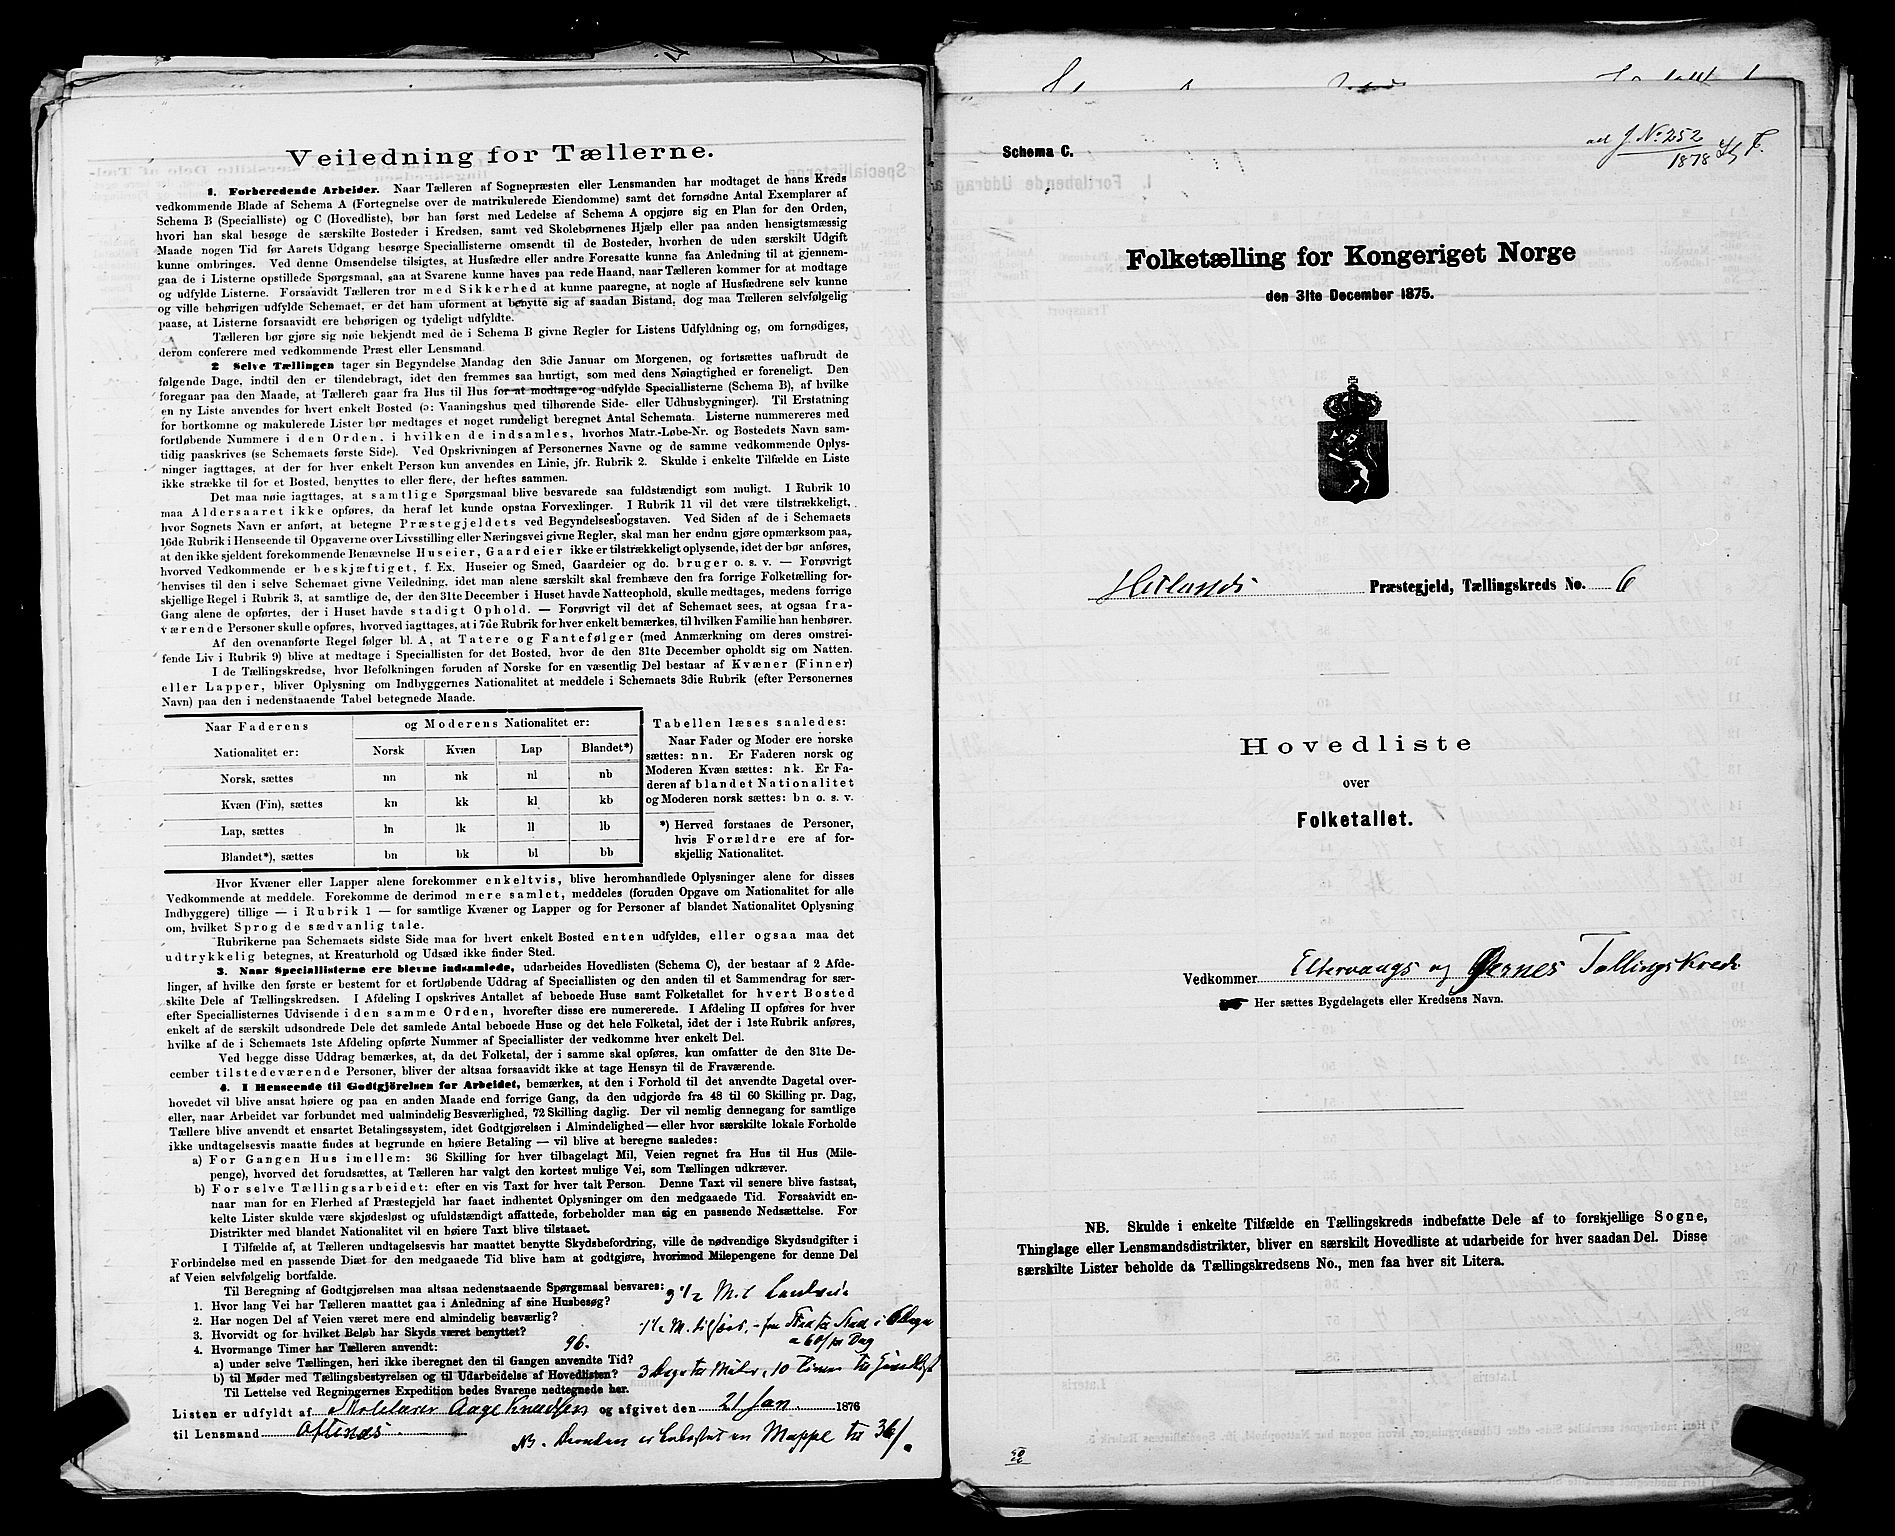 Veiledning for Tællerne.
1. Forberedende Arbeider. Naar Tælleren af Sognepræsten eller Lensmanden har modtaget de hans Kreds
vedkommende Blade af Schema A (Fortegnelse over de matrikulerede Eiendomme) samt det fornødne Antal Exemplarer af
Schema B (Specialliste) og C (Hovedliste), bør han først med Ledelse af Schema A opgjøre sig en Plan for den Orden,
hvori han skal besøge de særskilte Bosteder i Kredsen, samt ved Skolebørnenes Hjælp eller paa anden hensigtsmæssig
Maade nogen Tid før Aarets Udgang besørge Speciallisterne omsendt til de Bosteder, hvorhen de uden særskilt Udgift
kunne ombringes. Ved denne Omsendelse tilsigtes, at Husfædre eller andre Foresatte kunne faa Anledning til at gjennem-
gaa de i Listerne opstillede Spørgsmaal, saa at Svarene kunne haves paa rede Haand, naar Tælleren kommer for at modtage
og udfylde Listerne. Forsaavidt Tælleren tror med Sikkerhed at kunne paaregne, at nogle af Husfædrene selv kunne
og ville behørigen udfylde Schemaet, er det ham uforment at benytte sig af saadan Bistand, dog maa Tælleren selvfølgelig
paase, at Listerne forsaavidt ere behørigen og tydeligt udfyldte.
Tælleren bør gjøre sig nøie bekjendt med de i Schema B givne Regler for Listens Udfyldning og, om fornødiges,
derom conferere med vedkommende Præst eller Lensmand.
2 Selve Tællingen tager sin Begyndelse Mandag den 3die Januar om Morgenen, og fortsættes uafbrudt de
følgende Dage, indtil den er tilendebragt, idet den fremmes saa hurtigt, som med dens Nøiagtighed er foreneligt. Den
foregaar paa den Maade, at Tælleren gaar fra Hus til Hus for at modtage og udfylde Speciallisterne (Schema B), af hvilke
en ny Liste anvendes for hvert enkelt Bosted (ɔ: Vaaningshus med tilhørende Side- eller Udhusbygninger). Til Erstatning
for bortkomne og makulerede Lister bør medtages et noget rundeligt beregnet Antal Schemata. Listerne nummereres med
fortløbende Nummere i den Orden, i hvilken de indsamles, hvorhos Matr.-Løbe-Nr. og Bostedets Navn sam-
tidig paaskrives (se Schemaets første Side). Ved Opskrivningen af Personernes Navne og de samme vedkommende Oplys-
ninger iagttages, at der for hver enkelt Person kun anvendes en Linie, jfr. Rubrik 2. Skulde i enkelte Tilfælde en Liste
ikke strække til for et Bosted, benyttes to eller flere, der heftes sammen.
Det maa nøie iagttages, at samtlige Spørgsmaal blive besvarede saa fuldstændigt som muligt. I Rubrik 10
maa Aldersaaret ikke opføres, da heraf let kunde opstaa Forvexlinger. I Rubrik 11 vil det være tilstrækkeligt,
hvor Sognets Navn er anført, at betegne Præstegjeldets ved Begyndelsesbogstaven. Ved Siden af de i Schemaets
16de Rubrik i Henseende til Opgaverne over Livsstilling eller Næringsvei givne Regler, skal man her endnu gjøre opmærksom paa,
at den ikke sjeldent forekommende Benævnelse Huseier, Gaardeier ikke er tilstrækkeligt oplysende, idet der bør anføres,
hvorved Vedkommende er beskjæftiget, f. Ex. Huseier og Smed, Gaardeier og do. bruger o. s. v. — Forøvrigt
henvises til den i selve Schemaet givne Veiledning, idet man alene særskilt skal fremhæve den fra forrige Folketælling for-
skjellige Regel i Rubrik 3, at samtlige de, der den 31te December i Huset havde Natteophold, skulle medtages, medens forrige
Gang alene de opførtes, der i Huset havde stadigt Ophold. — Forøvrigt vil det af Schemaet sees, at ogsaa fra-
værende Personer skulle opføres, hvorved iagttages, at i 7de Rubrik for hver enkelt bemærkes, til hvilken Familie han henhører.
Af den ovenanførte Regel følger bl. A, at Tatere og Fantefølger (med Anmærkning om deres omstrei-
fende Liv i Rubrik 9) blive at medtage i Speciallisten for det Bosted, hvor de den 31te December opholdt sig om Natten.
I de Tællingskredse, hvor Befolkningen foruden af Norske for en væsentlig Del bestaar af Kvæner (Finner)
eller Lapper, bliver Oplysning om Indbyggernes Nationalitet at meddele i Schemaets 3die Rubrik (efter Personernes
Navn) paa den i nedenstaaende Tabel betegnede Maade.
Naar Faderens og Moderens Nationalitet er:
Nationalitet er: Norsk Kvæn Lap Blandet*)
Norsk, sættes nn nk nl nb
Kvæn (Fin), sættes kn kk kl kb
Lap, sættes ln lk ll lb
Blandet*), sættes bn bk bl bb
Tabellen læses saaledes:
Naar Fader og Moder ere norske
sættes: nn. Er Faderen norsk og
Moderen Kvæn sættes: nk. Er Fa-
deren af blandet Nationalitet
og Moderen norsk sættes: bn o. s. v.
*) Herved forstaaes de Personer,
hvis Forældre ere af for-
skjellig Nationalitet.
Hvor Kvæner eller Lapper alene forekommer enkeltvis, blive heromhandlede Oplysninger alene for disses
Vedkommende at meddele. Forekomme de derimod mere samlet, meddeles (foruden Opgave om Nationalitet for alle
Indbyggere) tillige — i Rubrik 1 — for samtlige Kvæner og Lapper og for Personer af blandet Nationalitet Oplysning
om, hvilket Sprog de sædvanlig tale.
Rubrikerne paa Schemaets sidste Side maa for hvert enkelt Bosted enten udfyldes, eller ogsaa maa det
udtrykkelig betegnes, at Kreaturhold og Udsæd ikke finder Sted.
3. Naar Speciallisterne ere blevne indsamlede, udarbeides Hovedlisten (Schema C), der bestaar af 2 Afde-
linger, af hvilke den første er bestemt for et fortløbende Uddrag af Speciallisten og den anden til et Sammendrag for sær-
skilte Dele af Tællingskredsen. I Afdeling I opskrives Antallet af beboede Huse samt Folketallet for hvert Bosted
efter Speciallisternes Udvisende i den samme Orden, hvorefter disse ere numererede. I Afdeling II opføres for hver
enkelt af de særskilt udsondrede Dele det samlede Antal beboede Huse og det hele Folketal, idet der i 1ste Rubrik anføres,
hvilke af de i Schemaets 1ste Afdeling opførte Nummer af Speciallister der vedkomme hver enkelt Del.
Ved begge disse Uddrag bemærkes, at, da det Folketal, der i samme skal opføres, kun omfatter de den 31te De-
cember tilstedeværende Personer, bliver der altsaa forsaavidt ikke at tage Hensyn til de Fraværende.
4. I Henseende til Godtgjörelsen for Arbeidet, bemærkes, at den i Forhold til det anvendte Dagetal over-
hovedet vil blive ansat høiere og paa en anden Maade end forrige Gang, da den udgjorde fra 48 til 60 Skilling pr. Dag,
eller, naar Arbeidet var forbundet med ualmindelig Besværlighed, 72 Skilling daglig. Der vil nemlig dennegang for samtlige
Tællere blive anvendt et ensartet Betalingssystem, idet Godtgjørelsen i Almindelighed — eller hvor særskilte lokale Forholde
ikke undtagelsesvis maatte findes at begrunde en høiere Betaling — vil blive at beregne saaledes:
a) For Gangen Hus imellem: 36 Skilling for hver tilbagelagt Mil, Veien regnet fra Hus til Hus (Mile-
penge), hvorved det forudsættes, at Tælleren har valgt den kortest mulige Vei, som Tællingen udkræver.
b) For selve Tællingsarbeidet: efter en vis Taxt for hver talt Person. Denne Taxt vil senere blive fastsat,
naar man for en Flerhed af Præstegjeld har faaet indhentet Oplysninger om den medgaaede Tid. Forsaavidt en-
kelte Lister skulde være skjødesløst og ufuldstændigt affattede, forbeholder man sig en passende Nedsættelse. For
Distrikter med blandet Nationalitet vil en høiere Taxt blive tilstaaet.
I Tilfælde af, at Tælleren undtagelsesvis har maattet benytte Skydsbefordring, ville de nødvendige Skydsudgifter i
Forbindelse med en passende Diæt for den medgaaede Tid blive ham at godtgjøre, hvorimod Milepengene for denne Del
af Veien selvfølgelig bortfalde.
Til Beregning af Godtgjörelsen maa altsaa nedenstaaende Spørgsmaal besvares:
1. Hvor lang Vei har Tælleren maattet gaa i Anledning af sine Husbesøg? 3 1/2 Mil Landvei
2. Har nogen Del af Veien været mere end almindelig besværlig?
3. Hvorvidt og for hvilket Beløb har Skyds været benyttet? 1 1/2 M. tilsøes, - fra Sted til Sted i 6 Dage
a 60/ pr Dag
4. Hvormange Timer har Tælleren anvendt: 96.
a) under selve Tællingen, heri ikke iberegnet den til Gangen anvendte Tid?
b) til Møder med Tællingsbestyrelsen og til Udarbeidelse af Hovedlisten? 3 Dage til Møder, 10 Timer til
Til Lettelse ved Regningernes Expedition bedes Svarene nedtegnede her.
Listen er udfyldt af Skolelærer Aage Knudsen og afgivet den 21 Jan. 1876
til Lensmand Oftenæs.
NB. Desuden er en Mappe til 36/.
Schema C.
ad J. No 252
1878
Folketælling for Kongeriget Norge
den 31te December 1875.
Hetlands Præstegjeld, Tællingskreds No. 6
Hovedliste
over
Folketallet.
Vedkommer Eltervaags og Øernes Tællingskreds
Her sættes Bygdelagets eller Kredsens Navn.
NB. Skulde i enkelte Tilfælde en Tællingskreds indbefatte Dele af to forskjellige Sogne,
Thinglage eller Lensmandsdistrikter, bliver en særskilt Hovedliste at udarbeide for hver saadan Del. Disse
særskilte Lister beholde da Tællingskredsens No., men faa hver sit Litera.